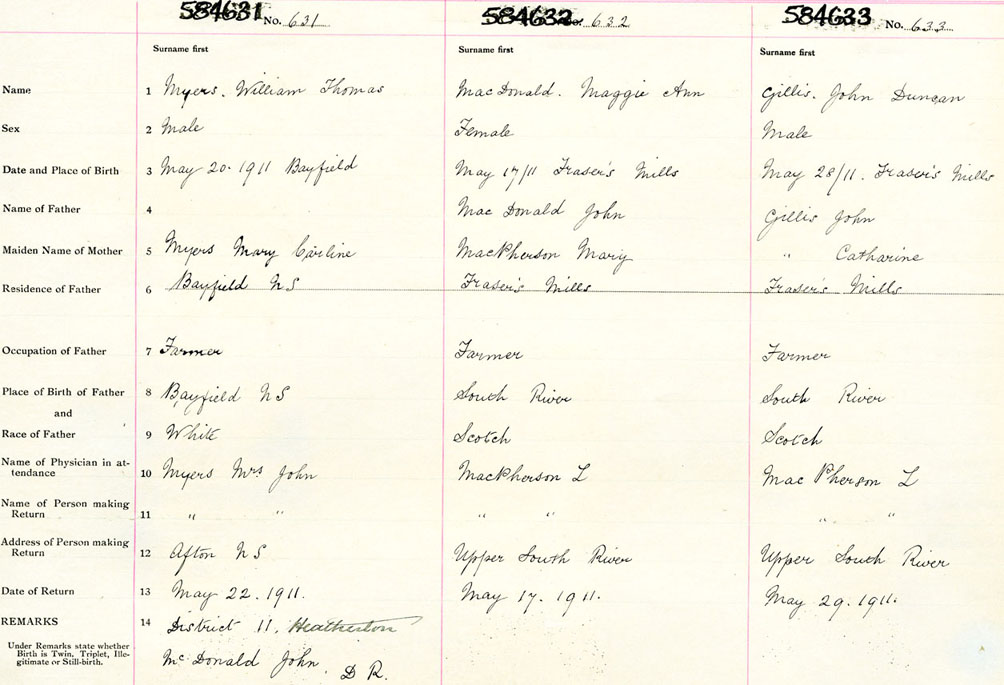 584631 No. 631 584632 No. 632 584633 No. 633
Surname first Surname first Surname first
Name 1 Myers. William Thomas MacDonald. Maggie Ann Gillis. John Duncan
Sex 2 Male Female Male
Date and Place of Birth 3 May 20. 1911 Bayfield May 17/11 Fraser's Mills May 28/11. Fraser's Mills
Name of Father 4 Mac Donald John Gillis John
Maiden Name of Mother 5 Myers Mary Caroline MacPherson Mary " Catharine
Residence of Father 6 Bayfield N S Fraser's Mills Fraser's Mills
Occupation of Father 7 Farmer Farmer Farmer
Place of Birth of Father 8 Bayfield N S South River South River
and
Race of Father 9 White Scotch Scotch
Name of Physician in at-
tendance 10 Myers Mrs John MacPherson L Mac Pherson L
Name of Person making
Return 11 " " " " " "
Address of Person making
Return 12 Afton N S Upper South River Upper South River
Date of Return 13 May 22. 1911. May 17. 1911. May 29. 1911.
REMARKS 14 District 11, Heatherton
Under Remarks state whether
Birth is Twin, Triplet, Ille-
gitimate or Still-birth.
Mc Donald John. D R.